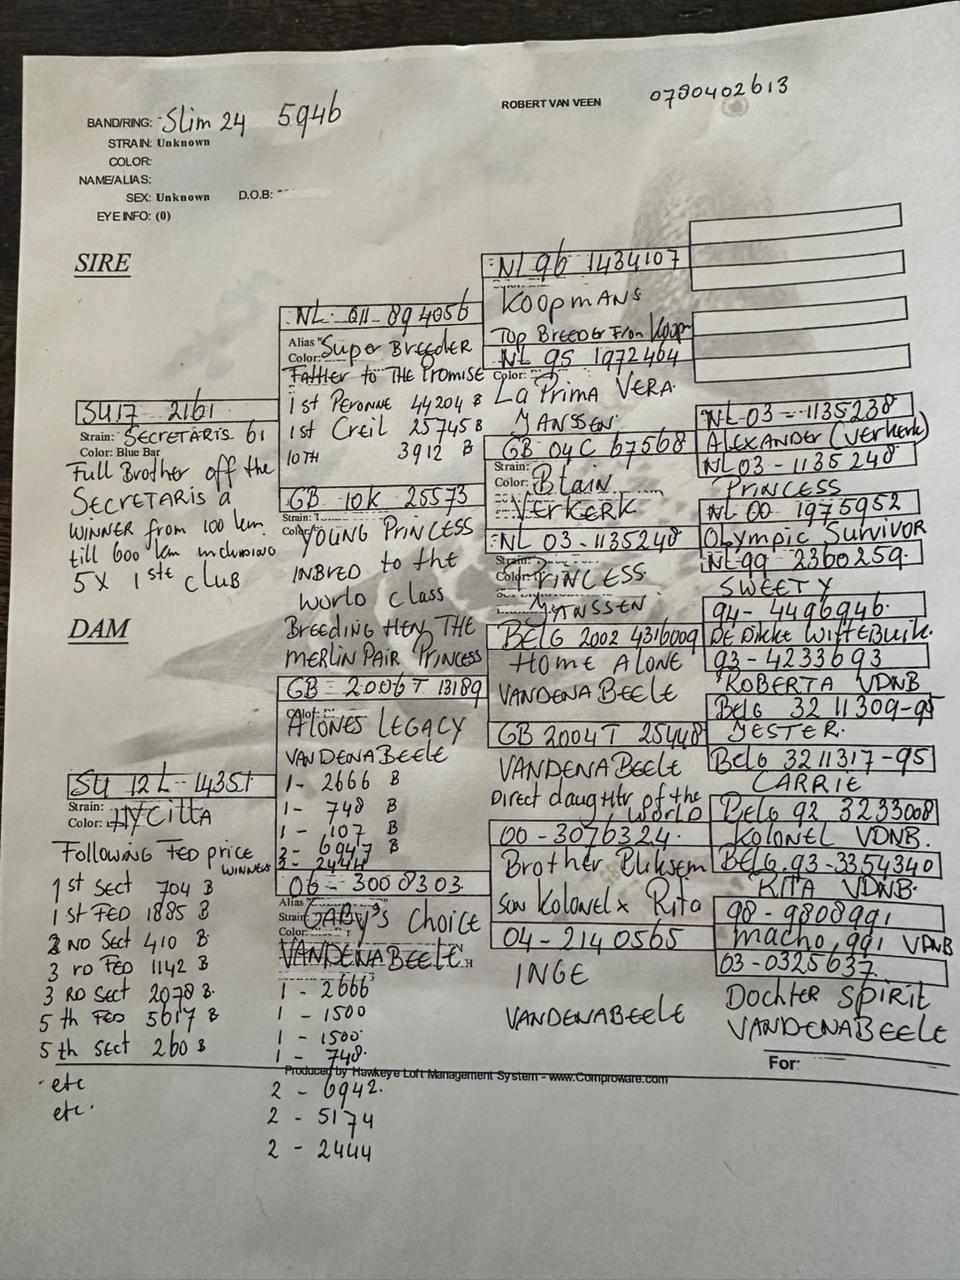 ROBERT VAN VEEN 0780402613
BAND/RING: Slim 24 5946
STRAIN: Unknown
COLOR:
NAME/ALIAS:
SEX: Unknown D.O.B:
EYE INFO: (0)
SIRE
SU17 2161
Strain: SECRETARIS 61
Color: Blue Bar
Full Brother off the
SECRETARIS a
WINNER from 100 km
till 600 km including
5X 1ste club
DAM
SU 12 L - 14351
Strain:
Color: HYCITTA
Following FED price
WINNERS
1st Sect 704 B
1st FED 1885 B
2 ND Sect 410 B
3 rd FED 1142 B
3 RD Sect 2078 B.
5 th FED 5617 B
5th Sect 260 B
etc
etc.
NL - 011 - 894056
Alias Super Breeder
Color:
FATHER to THE Promise
1st Peronne 44204 B
1st Creil 25745 B
10TH 3912 B
GB 10K 25573
Strain:
Color: YOUNG PRINCESS
INBRED to the
World class
Breeding HEN THE
MERLIN PAIR PRINCESS
GB - 2006T 13189
Color:
ALONES LEGACY
VANDENABEELE
1- 2666 B
1- 748 B
1- 107 B
2- 6947 B
2- 2444
06 - 3008303
Alias
Strain GABY'S CHOICE
Color:
VANDENABEELE
1 - 2666
1 - 1500
1 - 1500
1 - 748.
Produced by Hawkeye Loft Management System - www.Comproware.com
2 - 6942.
2 - 5174
2 - 2444
NL 96 1434107
KOOPMANS
Top Breeder From Koop
NL 95 1972464
Color:
La Prima VERA.
JANSSEN.
GB 04C 67568
Strain:
Color: Blain
VERKERK
NL 03 - 1135248
Strain:
Color: PRINCESS
JANSSEN
BELG 2002 4316009
HOME ALONE
VANDENABEELE
GB 2004T 25448
VANDENABEELE
Direct daughtr of the
World
00 - 3076324.
Brother Bliksem
son Kolonel x Rita
04 - 2140565
INGE
VANDENABEELE
NL-03 - 1135238
ALEXANDER (Verkerk)
NL03 - 1135248
PRINCESS
NL 00 1975952
Olympic Survivor
NL-99 - 2360259.
SWEETY
94- 4496946.
DE DIKKE WITTEBUIK.
93 - 4233693
ROBERTA VDNB
BELG 3211309-95
JESTER.
BELG 3211317-95
CARRIE
BELG 92 3233008
KOLONEL VDNB.
BELG. 93 - 3354340
RITA VDNB.
98 - 9808991
macho, 991 VDNB
03 - 0325637
DOCHTER SPIRIT
VANDENABEELE
For: